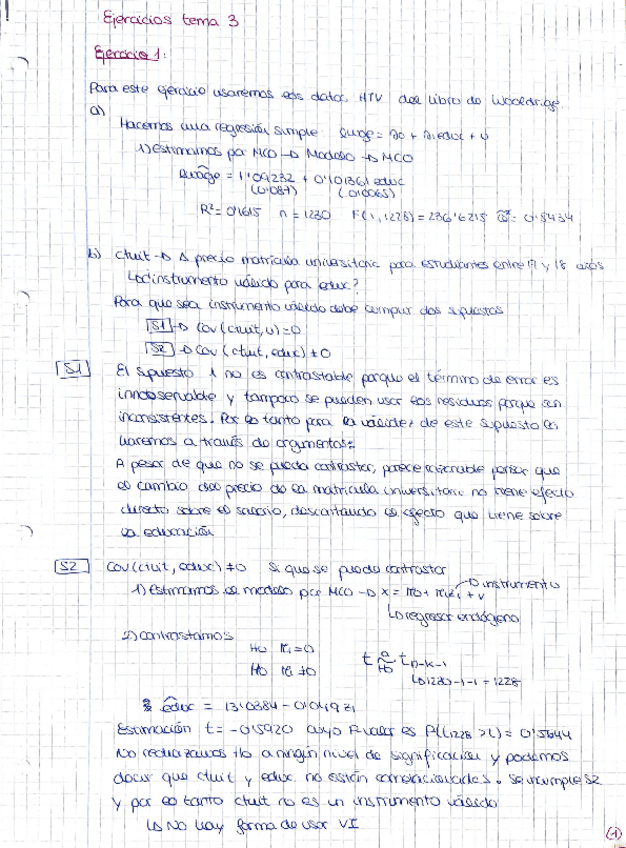 Ejercicios tema 3
Ejercicio 1:
Para este ejercicio usaremos los datos HTV del libro de Wooldrige.
a)
Hacemos una regresión simple lwage = β0 + β1educ + u
1) estimamos por MCO → Modelo → MCO
lwage = 1'09232 + 0'101361 educ
(0'087) (0'0065)
R²= 0'1615 n = 1230 F(1,1228) = 236'6215 = 0'5434
b) ctuit → Δ precio matrícula universitaria para estudiantes entre 17 y 18 años
↳ ¿instrumento válido para educ?
Para que sea instrumento válido debe cumplir dos supuestos
S1 → Cov(ctuit, u)=0
S2 → Cov (ctuit, educ) ≠ 0
S1 El supuesto 1 no es contrastable porque el término de error es
inobservable y tampoco se pueden usar los residuos porque son
inconsistentes. Por lo tanto para la validez de este supuesto lo
haremos a través de argumentos:
A pesar de que no se pueda contrastar, parece razonable pensar que
el cambio del precio de la matrícula universitaria no tiene efecto
directo sobre el salario, descartando el efecto que tiene sobre
la educación
S2 Cov(ctuit, educ) ≠ 0 Si que se puede contrastar
→ instrumento
1) Estimamos el modelo por MCO → x = π0 + π1z1 + v
↳ regresor endógeno
2) contrastamos
H0 π1 = 0
H0 π1 ≠ 0 t a~H0 tn-k-1
↳ 1230-1-1 = 1228
educ = 13'0384 - 0'049z1
Estimación t = -0'5920 cuyo P valor es P(t1228 > t) = 0'5644
No rechazamos H0 a ningún nivel de significación y podemos
decir que ctuit y educ no están correlacionadas. Se incumple S2
y por lo tanto ctuit no es un instrumento válido
↳ No hay forma de usar VI
1